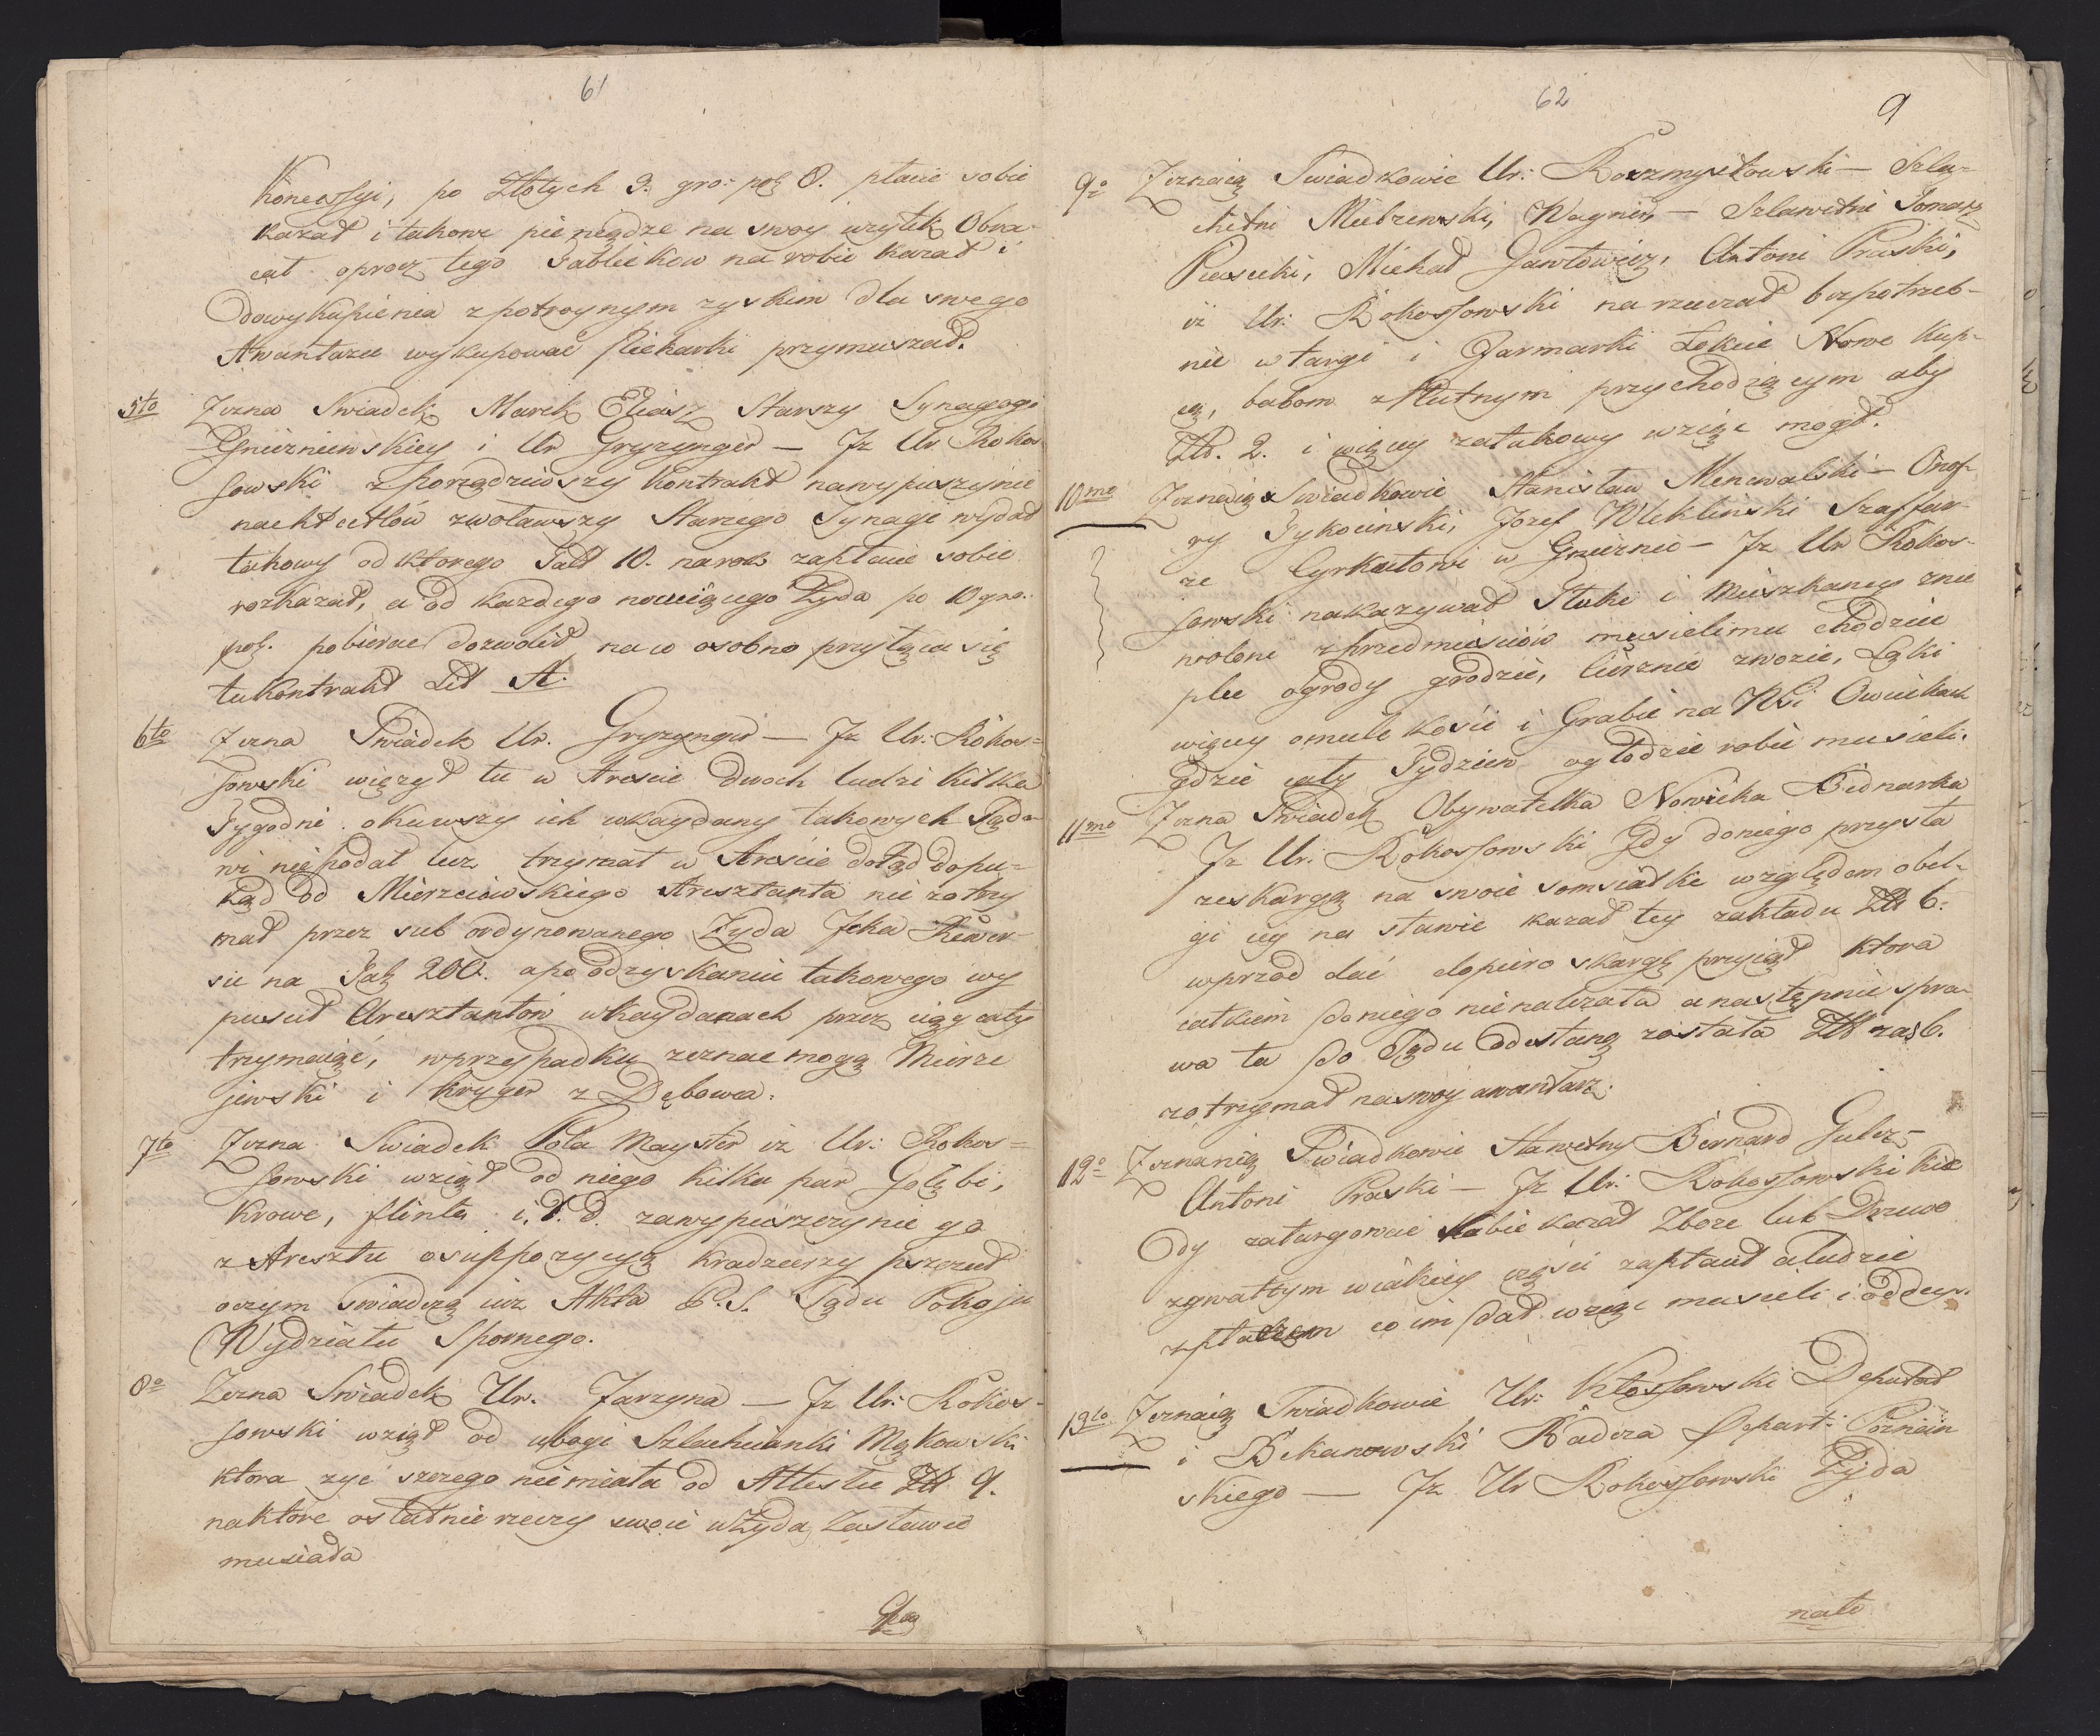 61
Koncessyi, po Złotych 3. gro: pol: 8. płacić sobie
kazał i takowe pieniądze na swoy użytek Obra-
cał oprocz tego Tabliczkow narobić kazał i
dowykupienia z potroynym zyskiem dla swego
Awantazu wykupować Piekarki przymuszał.
5to Zezna Swiadek Marek Eliasz Starszy Synagogi
Gnieznienskiey i Ur Gryzynger — Jz Ur Rokos
sowski zporządziwszy Kontrakt nawypuszczynie
nachtcetlów zwoławszy Starszego Synagi wydał
takowy od ktorego Tal 10. narok zapłacić sobie
rozkazał, a od kazdego nocuiącego Zyda po 10 gro.
pol. pobierac dozwolił na co osobno przyłącza się
tu Kontrakt Lit A.
6to Zezna Swiadek Ur. Gryzynger — Jz Ur: Rokos=
sowski więzył tu w Areście dwoch ludzi kilka
Tygodni okuwszy ich wkaydany takowych Sądo-
wi niepodał lecz trzymał w Areście dotąd dopu-
kąd od Mierzeiewskiego Aresztanta nie zotrzy
mał przez sub ordynowanego Zyda Jcka Rewer-
su na Tal: 200. apo odzyskaniu takowego wy
puscił Aresztantów wkaydanach przez ciąg cały
trzymaiąć, wprzypadku zeznac mogą Mierze
jewski i Kryger z Dębowca.
7to Zezna Swiadek Pola Mayster iz Ur: Rokos=
sowski wziął od niego kilka par Gołębi,
Krowe, flinte i. t. d. zawypuszczynie go
z Aresztu osuppozycyą kradzieszy pszczuł
oczym swiadczą iuz Akta P. S. Sądu Pokoju
Wydziału Spornego.
8o Zezna Swiadek Ur. Jarzyna — Jz Ur: Rokos-
sowski wziął od ubogi Szlachcianki Mąkowski
ktora zyć szczego nie miała od Attestu Zł 9.
naktore ostatnie rzeczy swoie u Zyda Zastawić
musiała
9no
62
9
9o Zeznaią Swiadkowie Ur: Rozmysłowski — Szla-
chetni Mielrzewski, Wagner, — Szlawetni Tomasz
Piasecki, Michał Gawłowicz, Antoni Pruski,
iz Ur: Rokossowski narzucał bezpotrzeb-
nie w targi i Jarmarki Łokcie Nowe kup-
cą, babom z Płutnym przychodzącym aby
Zł. 2. i więcey zatakowy wziąc mogł.
10mo Zeznaią Swiadkowie Stanisław Menewalski — Onof-
ry Tykocinski, Jozef Wiklinski Szaffar-
ze Cyrkułowi w Gnieznie — Jz Ur Rokos-
sowski nakazywał Stuki i Mieszkancy znie
woleni zprzedmieściów musielimu chodzić
plec ogrody grodzić, Cierznie zwozić, Łąki
więcey omile kosić i Grabić na Wsi Owieczkach
gdzie cały Tydzien ogłodzie robić musieli.
11mo Zezna Swiadek Obywatelka Nowicka Bednarka
Jz Ur: Rokossowski Gdy doniego przyszła
zeskargą na swoie somsiadke względem obel-
gi iey na sławie kazał tey zakładu Zł 6.
wprzod dać dopiero skargę przyiął ktora
całkiem doniego nienalezała anastępnie spra-
wa ta do Sądu odesłaną została Zł zaś 6.
zotrzymał naswoy awantarz.
12o Zeznanią Swiadkowie Sławetny Bernard Gulcz-
Antoni Pruski — Jz Ur: Rokossowski kie
dy zatargowac sobie kazał Zboze lub Drzewo
zgwałtym wiekszy części zapłacił aludzie
zpłaczem co im dał wziąc musieli i oddey.
13to Zeznaią Swiadkowie Ur: Kłossowski Deputat
i Bekanowski Radca Depart: Poznan
skiego — Jz Ur Rokossowski Zyda
nato